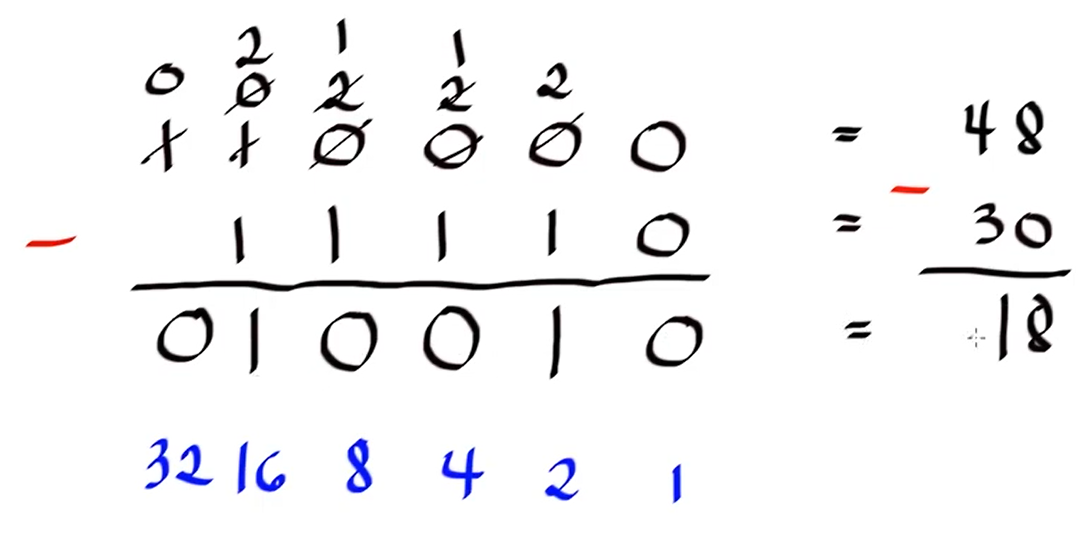 2 1 1
0 0 2 2 2
1 1 0 0 0 0 = 48
- 1 1 1 1 0 = - 30
0 1 0 0 1 0 = 18
32 16 8 4 2 1